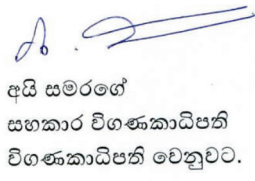 අයි සමරගේ
සහකාර විගණකාධිපති
විගණකාධිපති වෙනුවට.